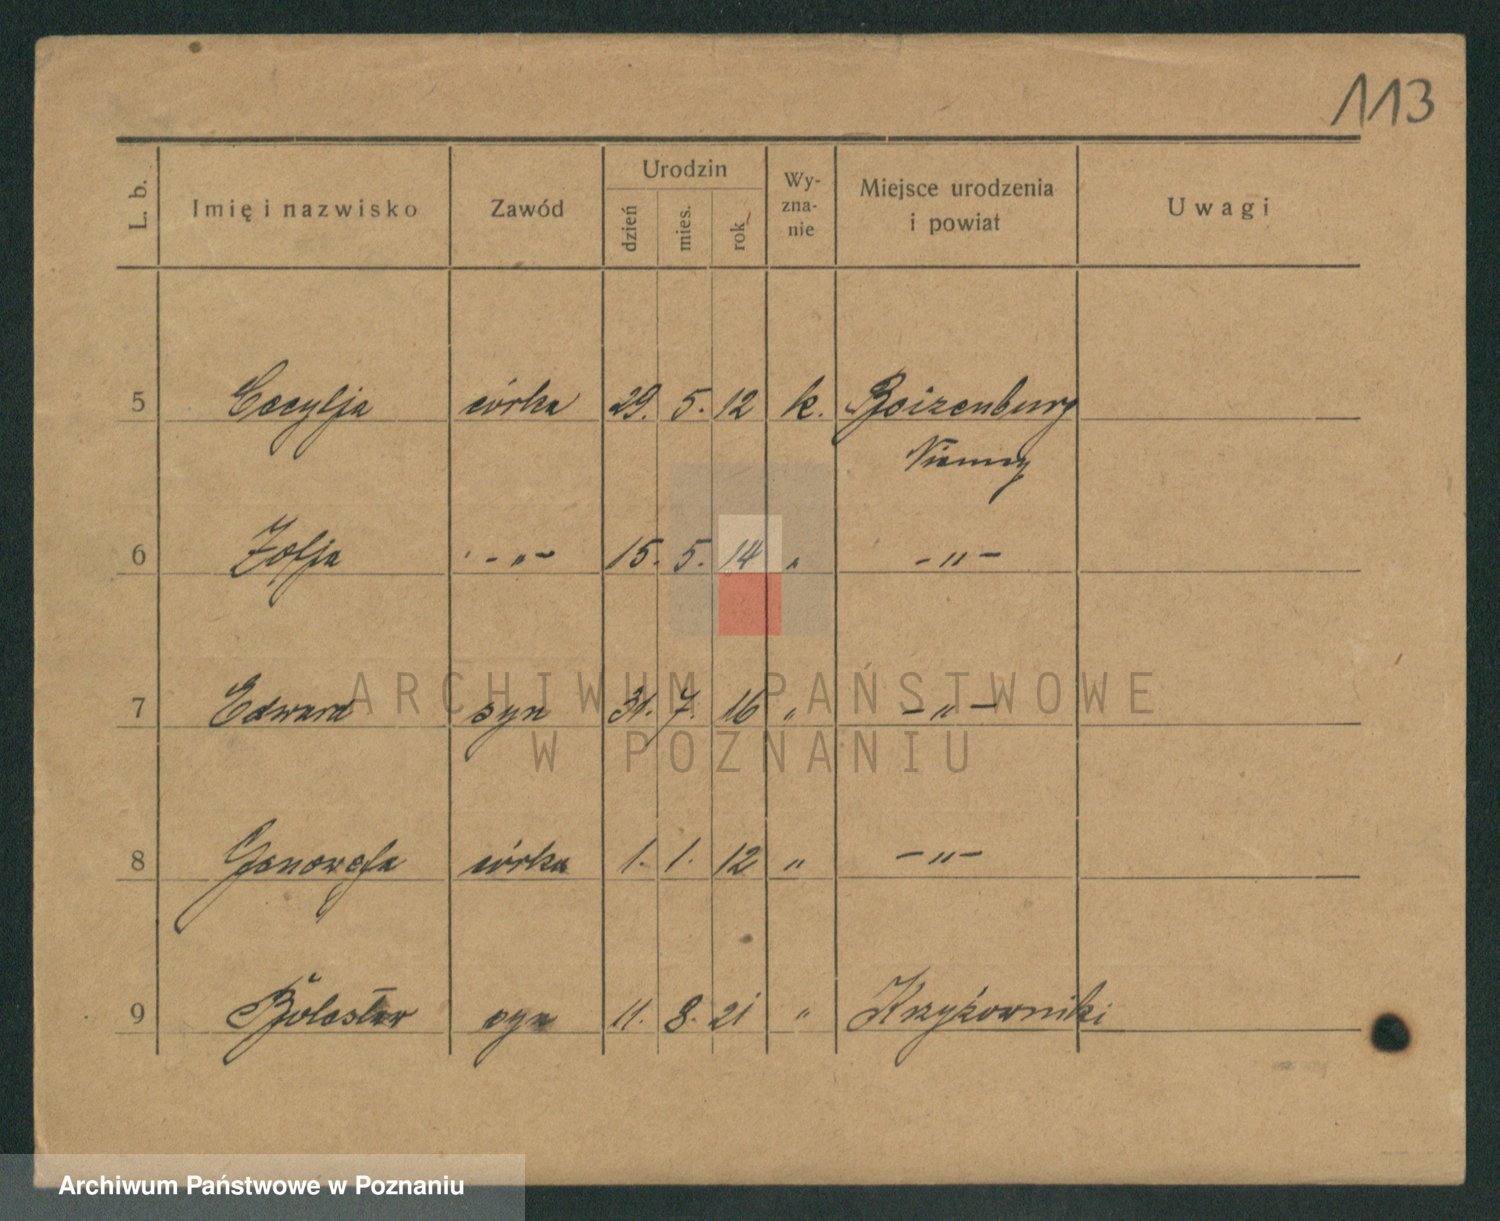 113
L. b. Imię i nazwisko Zawód Urodzin dzień mies. rok Wy-zna-nie Miejsce urodzenia i powiat Uwagi
5 Cecylja córka 29. 5. 12 k. Boizenburg
Niemcy
6 Zofja -„- 15. 5. 14 „ -„-
7 Edward syn 31. 7. 16 „ -„-
ARCHIWUM PAŃSTWOWE
W POZNANIU
8 Genowefa córka 1. 1. 12 „ -„-
9 Bolesław syn 11. 8. 21 „ Krzyżowniki
Archiwum Państwowe w Poznaniu